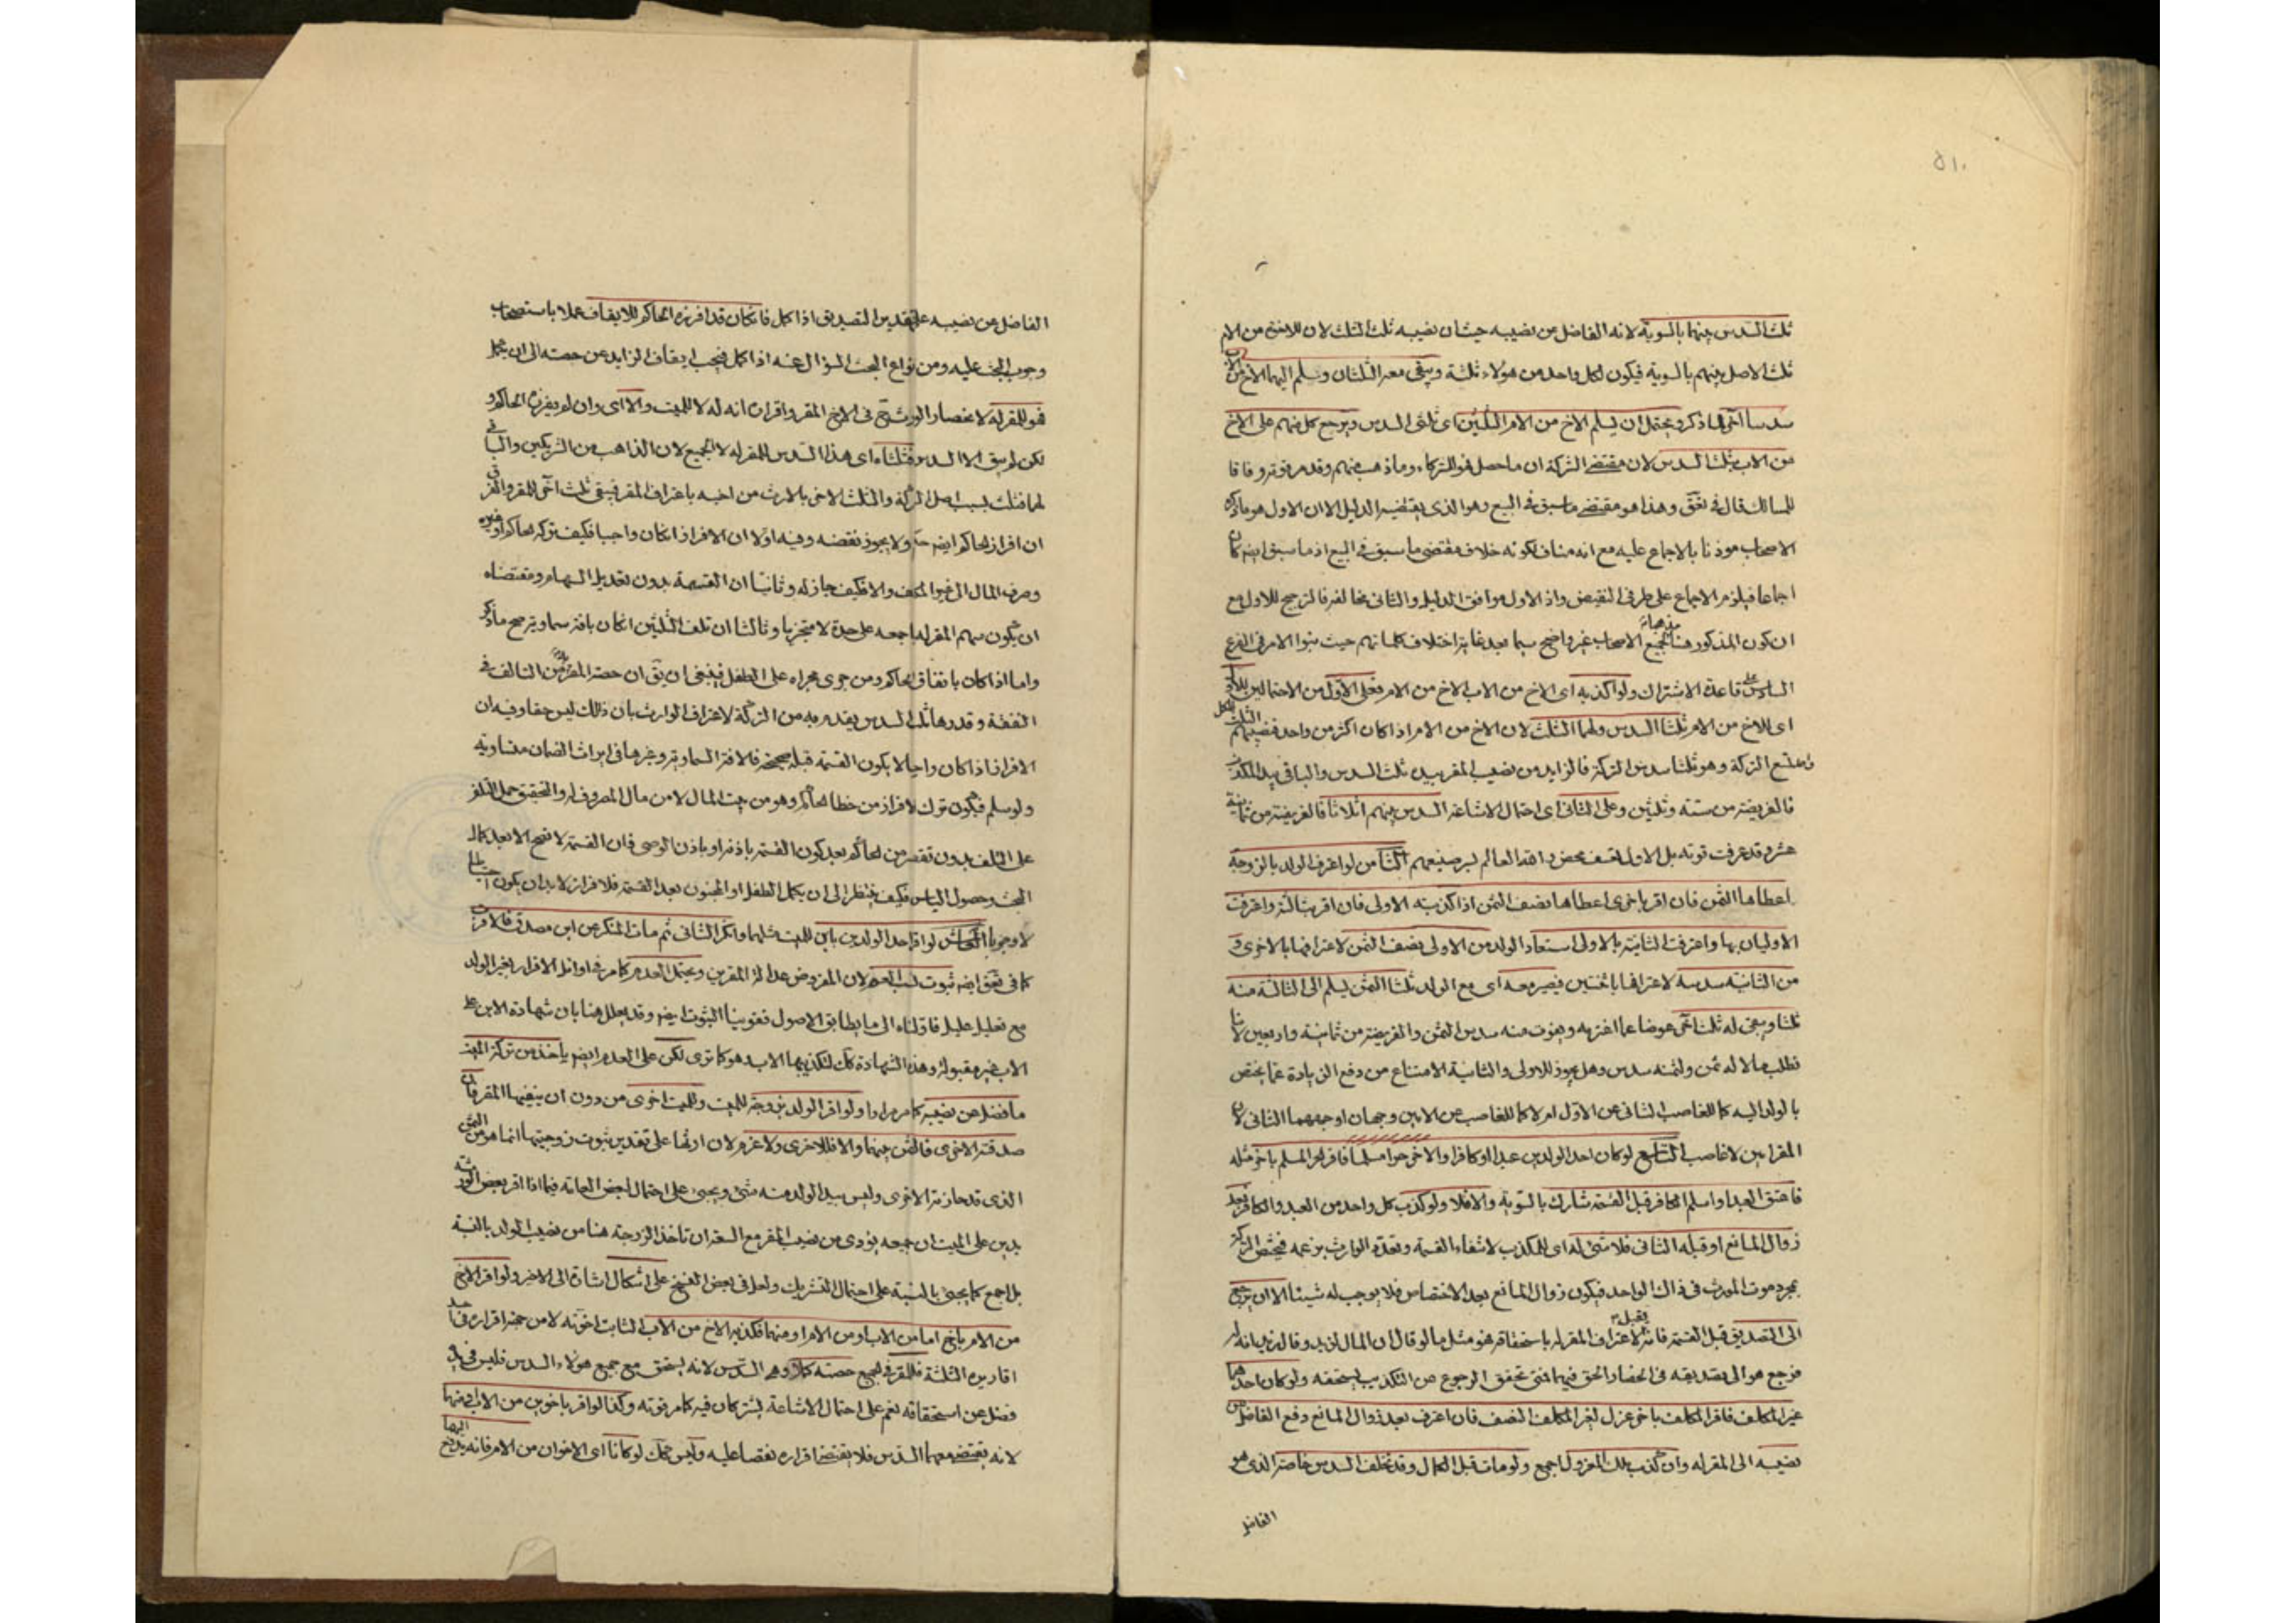 ٥١٠
ثلث السدس بينهما بالسوية لانه الفاضل من نصيبه حيث ان نصيبه ثلث الثلث لان للاخوة من الام
ثلث الاصل بينهم بالسوية فيكون لكل واحد من هؤلاء ثلثه ويبقى معه الثلثان ويسلم اليهما الاخ من الاب
سدسا آخر لما ذكر ويحتمل ان يسلم الاخ من الام الثلثين اى ثلثى السدس ويرجع كل منهم على الاخ
من الاب بثلث السدس لان مقتضى الشركة ان ما حصل فهو للشركاء وما ذهب فمنهم وقدم قوته وفاقا
للمسالك قال فى تعق وهذا هو مقتضى ما سبق فى البيع وهو الذى يقتضيه الدليل الا ان الاول هو ما ذكره
الاصحاب موذنا بالاجماع عليه مع انه مناف لكونه خلاف مقتضى ما سبق فى البيع اذ ما سبق ايضا كان
اجماعا فيلزم الاجماع على طرفى النقيض واذ الاول موافق الدليل والثانى مخالفه فالترجيح للاول مع
ان كون المذكور هنا لجميع الاصحاب غير واضح سيما بعد غاية اختلاف كلماتهم حيث بنوا الامر فى الفرع
السادس على قاعدة الاشتراك ولو اكذبه اى الاخ من الاب الاخ من الام فعلى الاول من الاحتمالين للاخ
اى للاخ من الام ثلثا السدس ولهما الثلث لان الاخ من الام اذا كان اكثر من واحد فنصيبهم الثلث
التركة وهو ثلثا سدس التركة فالزايد من نصيب المقر بيده ثلث السدس والباقى بيد المكذب
فالفريضة من ستة وثلثين وعلى الثانى اى احتمال الاشاعة السدس بينهم اثلاثا فالفريضة من ثمانية
عشر وقد عرفت قوته بل الاول تعسف محض والله العالم الثامن لو اعترف الولد بالزوجة
اعطاها الثمن فان اقر باخرى اعطاها نصف الثمن اذا كذبته الاولى فان اقر بثالثة واعترفت
الاوليان بها واعترفت الثانية بالاولى استعاد الولد من الاولى نصف الثمن لاعترافها بالاخرى و
من الثانية سدسه لاعترافها باثنتين فيصير معه اى مع الولد ثلثا الثمن يسلم الى الثالثة منه
ثلثا ويبقى له ثلث آخر عوضا عما اغترمه ويفوت منه سدس الثمن والفريضة من ثمانية واربعين لانا
نطلب مالا له ثمن ولثمنه سدس وهل يجوز للاولى والثانية الامتناع من دفع الزيادة عما يختص
بالولد اليه كالغاصب الثانى عن الاول ام لا كالغاصب عن الابن وجهان اوجههما الثانى لان
المقر ابن لا غاصب التاسع لو كان احد الولدين عبدا او كافرا والاخر حرا مسلما فاقر الحر المسلم باخر مثله
فاعتق العبد او اسلم الكافر قبل القسمة شارك بالسوية والا فلا ولو كذب كل واحد من العبد والكافر بعد
زوال المانع او قبله الثانى فلا شىء له اى للمكذب لانتفاء القسمة وتعدد الوارث بزعمه فيختص التركة
بمجرد موت المورث فى ذلك الواحد فيكون زوال المانع بعد الاختصاص فلا يوجب له شيئا الا ان يرجع
الى التصديق قبل القسمة فانه يقبل لاعتراف المقر له باستحقاقه فهو مثل ما لو قال ان المال لزيد وقال زيد انه له
فرجع هو الى تصديقه فى انحصار الحق فيهما فمتى تحقق الرجوع من التكذيب يستحقه ولو كان احدهما
غير المكلف فاقر المكلف باخر عزل لغير المكلف النصف فان اعترف بعد زوال المانع دفع الفاضل عن
نصيبه الى المقر له وان كذب ملك المعزول اجمع ولو مات قبل الكمال وقد تخلف السدس خاصة الذى هو
الفاضل
الفاضل من نصيبه على تقدير التصديق اذا كمل فان كان قد افرزه الحاكم للايقاف عملا باستصحاب
وجوب البحث عليه ومن انواع البحث السؤال عنه اذا كمل فيجب ايقاف الزايد عن حصته الى ان يكمل
فهو للمقر له لانحصار الورثة فى الاخ المقر واقراره انه له لا للميت والا اى وان لم يفرزه الحاكم و
لكن لم يبق الا السدس فثلثاه اى هذا السدس للمقر له لا الجميع لان الذاهب من الشريكين والباقى
لهما فثلث بسبب اصل التركة والثلث الاخر بالارث من اخيه باعتراف المقر فيبقى ثلث آخر للمقر والفرق
ان افراز الحاكم ولا يجوز نقضه وفيه اولا ان الافراز ان كان واجبا فكيف تركه الحاكم او غيره
وصرف المال الى غير المكلف والا فكيف جاز له وثانيا ان القسمة بدون تعديل السهام ومقتضاه
ان يكون سهم المقر له باجمعه على حدة لا متجزيا وثالثا ان تلف الثلثين ان كان بافة سماوية صح ما ذكر
واما اذا كان بانفاق الحاكم ومن جرى مجراه على الطفل فينبغى ان يق ان حصة المقر له من التالف فى
النفقة وقدرها ثلث السدس يقدم به من التركة لاعتراف الوارث بان ذلك ليس حقا وفيه ان
الافراز اذا كان واجبا لا يكون القسمة قبله صحيحة فالافة السماوية وغيرها فى ايراث الضمان متساوية
ولو سلم فيكون ترك الافراز من خطا الحاكم وهو من بيت المال لا من مال المصروف له والتحقيق حمل التلف
على التلف بدون تقصير من الحاكم بعد كون القسمة باذنه او باذن الوصى فان القسمة لا تصح الا بعد كمال
البحث وحصول الياس فكيف ينتظر الى ان يكمل الطفل او المجنون بعد القسمة فلا افراز لا بد ان يكون احتياطا
لا وجوبا العاشر لو اقر احد الولدين بابن للميت مثلهما وانكر الثانى ثم مات المنكر عن ابن مصدق فالاقرب
كما فى تعق ايضا ثبوت نسب العم لان المفروض عدالة المقرين ويحتمل العدم كما مر فى اوائل الاقرار بغير الولد
مع تعليل عليل فاولناه الى ما يطابق الاصول فقوينا الثبوت ايضا وقد يعلل هنا بان شهادة الابن على
الاب غير مقبولة وهذه الشهادة كك لتكذيبها الاب هو كما ترى لكن على العدم ايضا ياخذ من تركة الميت
ما فضل عن نصيبه كما مر مرارا ولو اقر الولد بزوجة للميت وللميت اخرى من دون ان ينفيها المقر فان
صدقته الاخرى فالثمن بينهما والا فللاخرى ولا غرم لان ارثها على تقدير ثبوت زوجيتها انما هو من الثمن
الذى قد حازته الاخرى وليس بيد الولد منه شىء ويجئ على احتمال لبعض العامة فيما اذا اقر بعض الورثة
بدين على الميت ان جميعه يؤدى من نصيب المقر مع السعة ان تاخذ الزوجة هنا من نصيب الولد بالنسبة
بل اجمع كما يجئ بالنسبة على احتمال التشريك ولعل فى بعض النسخ على اشكال اشارة الى الاخير ولو اقر الاخ
من الام باخ اما من الاب او من الام او منهما فكذبه الاخ من الاب الثابت اخوته لا من حيث اقراره فى احد
اقاريره الثلثة فللمقر فى الجميع حصته كملا وهى السدس لانه يستحق مع جميع هؤلاء السدس فليس فى يده
فضل عن استحقاقه نعم على احتمال الاشاعة يشتركان فيه كما مر قوته وكذا لو اقر باخوين من الاب او منهما
لانه يقتضى معهما السدس فلا يقتضى اقراره نقصا عليه وليس كك لو كانا اى الاخوان من الام فانه يدفع اليهما